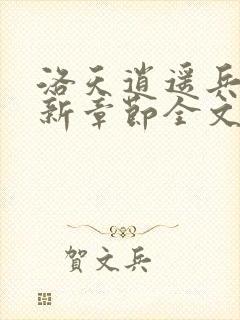 洛天逍遥兵
新章節全文
賀文兵